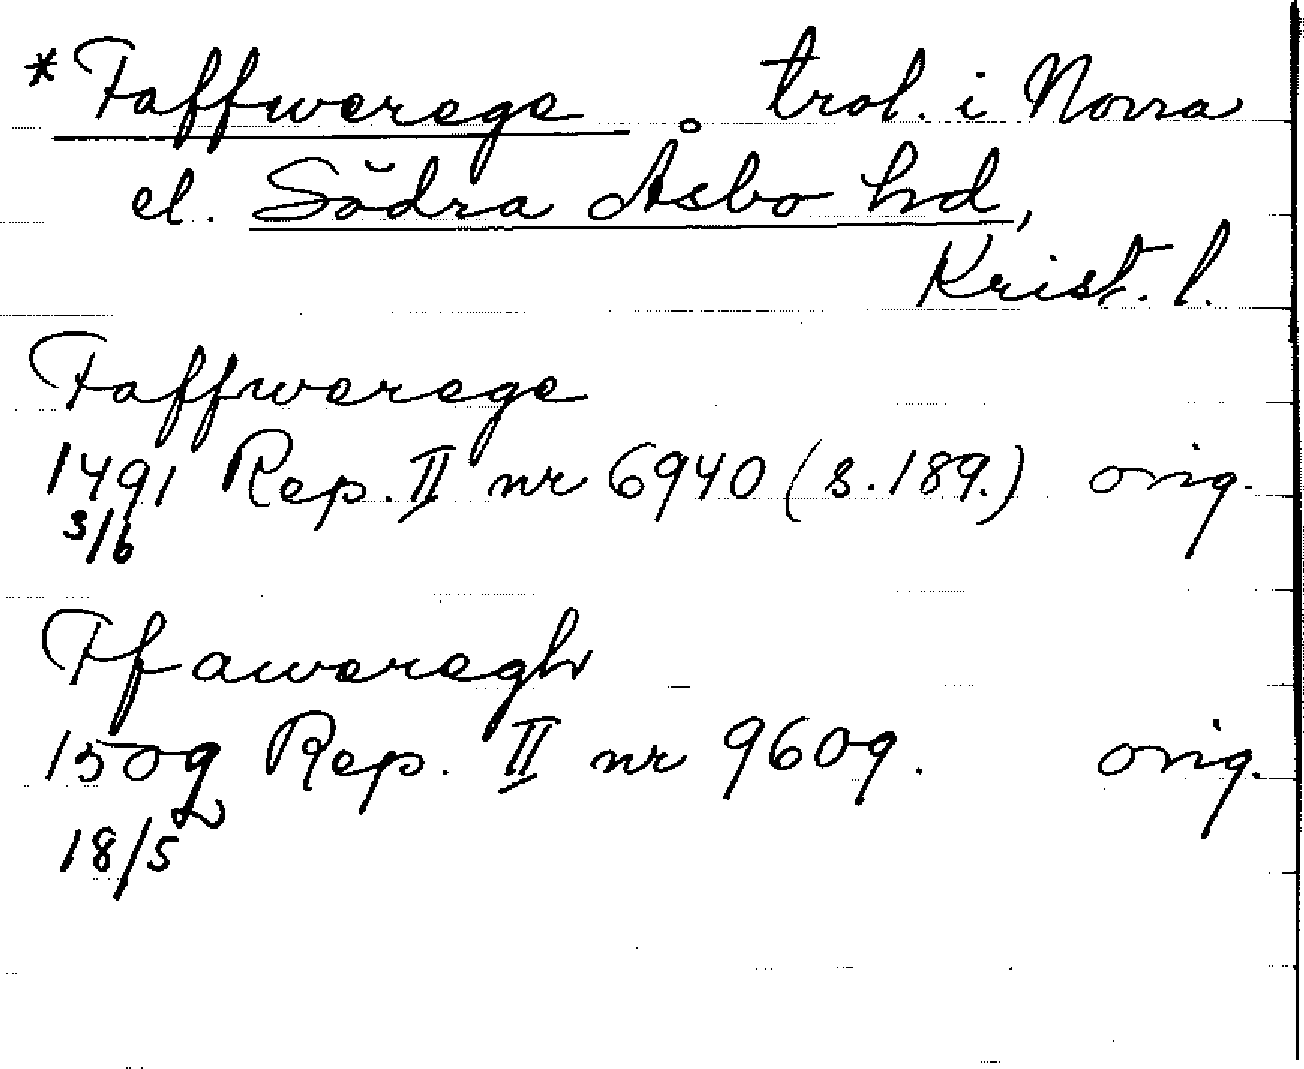 *Faffwerege trol. i Norra
el. Södra Åsbo hd,
Krist. l.
Faffwerege
1491 Rep. II nr 6940 (s. 189.) orig.
3/6
Ffaweregh
1509 Rep. II nr 9609. orig.
18/5